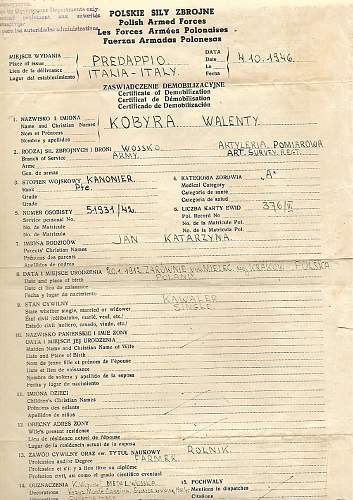 POLSKIE SIŁY ZBROJNE
Polish Armed Forces
Les Forces Armées Polonaises
Fuerzas Armadas Polonesas
MIEJSCE WYDANIA PREDAPPIO.
Place of issue
Lieu de la délivrance ITALIA - ITALY.
Lugar del establecimiento
DATA
Date 4.10.1946.
Le
Fecha
ZAŚWIADCZENIE DEMOBILIZACYJNE
Certificate of Demobilization
Certificat de Démobilisation
Certificado de Demobilización
1. NAZWISKO I IMIONA KOBYRA WALENTY.
Name and Christian Names
Nom et Prénoms
Nombre y apellidos
2. RODZAJ SIŁ ZBROJNYCH I BRONI WOJSKO ARTYLERIA POMIAROWA
Branch of Service ARMY. ART. SURVEY REGT.
Arme
Gen. de armas
3. STOPIEŃ WOJSKOWY KANONIER.
Rank Pte.
Grade
Grado
4. KATEGORIA ZDROWIA "A"
Medical Category
Catégorie de santé
Categoria de salud
5. NUMER OSOBISTY 51931/42.
Service personal No.
No. de Matricule
No. de Matricula
6. LICZBA KARTY EWID
Pol. Record No
No. de Matricule Pol.
No. de Matricula Pol.
7. IMIONA RODZICÓW JAN KATARZYNA.
Parents' Christian Names
Prénoms des parents
Apellidos de padres
8. DATA I MIEJSCE URODZENIA MIELEC KRAKÓW POLSKA
Date and place of birth POLAND
Date et lieu de naissance
Fecha y lugar de nacimiento
9. STAN CYWILNY KAWALER
State whether single, married or widower SINGLE
État civil (célibataire, marié, veuf, etc.)
Estado civil (soltero, casado, viudo, etc.)
10. NAZWISKO PANIEŃSKIE I IMIĘ ŻONY
DATA I MIEJSCE JEJ URODZENIA
Maiden Name and Christian Name of Wife
Date and Place of Birth
Nom de jeune fille et prénom de l'épouse
Date et lieu de naissance
Nombre de soltera y apellido de la esposa
Fecha y lugar de nacimiento
11. IMIONA DZIECI
Children's Christian Names
Prénoms des enfants
Apellidos de niños
12. OBECNY ADRES ŻONY
Wife's present residence
Lieu de résidence actuel de l'épouse
Lugar de la residencia actual de la esposa
13. ZAWÓD CYWILNY ORAZ EW. TYTUŁ NAUKOWY ROLNIK.
Profession and/or Degree FARMER.
Profession et s'il y a lieu titre ou diplôme
Profession civil, asi como el grado cientifico eventual
14. ODZNACZENIA
Decorations
Décorations
15. POCHWAŁY
Mentions in dispatches
Citations